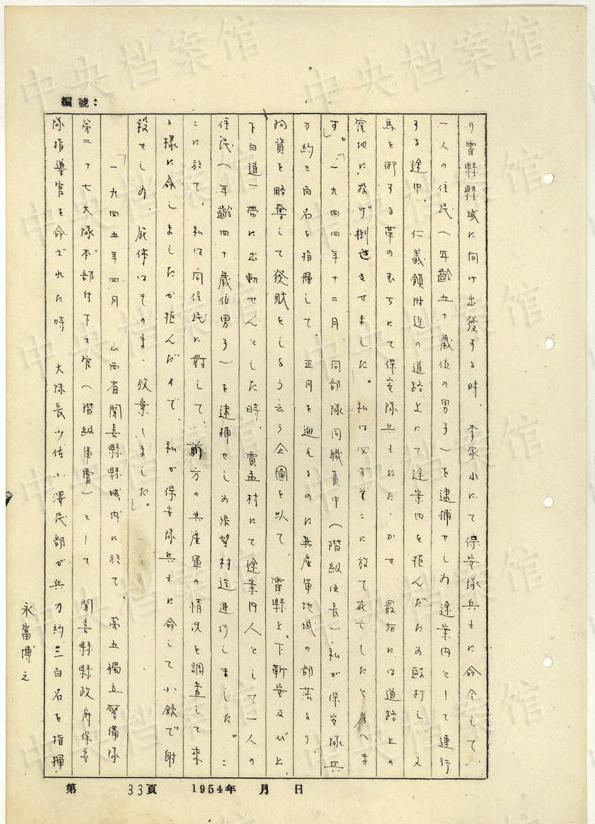 編號：
り霍縣縣城に向け出發する時、李家山にて保安隊兵士に命令して、
一人の住民（年齡五十歲位の男子）を逮捕せしめ途案内として連行
する途中、仁義鎮附近の道路上にて途案内を拒んだため毆打し、又
馬を御する革のむちにて保安隊兵士にたゝかせ最后には道路上の
窪地に投げ倒させました。私は必ずそこに於て死亡したと考へま
す。「一九四四年十二月同部隊同職員中（階級伍長）私が保安隊兵
力約三百名を指揮して、正月を迎えるのに共產軍地域の部落より
物資を略奪して發財をしよう云う企圖を以て、霍縣上、下靳安及び上、
下白道一帶に出動せんとした時、賈孟村にて途案内人として一人の
住民（年齡四十歲位男子）を逮捕せしめ 望村迄連行しました。こ
こに於て、私は同住民に對して、前方の共產軍の情況を調查して來
る樣に命じましたが拒んだので、私が保安隊兵士に命じて小銃で射
殺せしめ、屍体はそのまゝ放棄しました」。
「一九四五年四月 山西省聞喜縣縣城内に於て、第五獨立警備隊
第二十七大隊本部付下士官（階級軍曹）として 聞喜縣縣政府保安
隊指導官を命ぜれた時 大隊長少佐小澤民部が兵力約三百名を指揮
永富博之
第 33頁 1954年 月 日